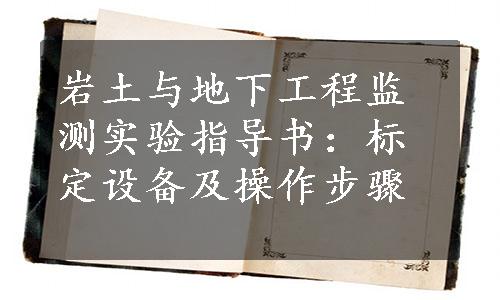 岩土与地下工程监
测实验指导书：标
定设备及操作步骤